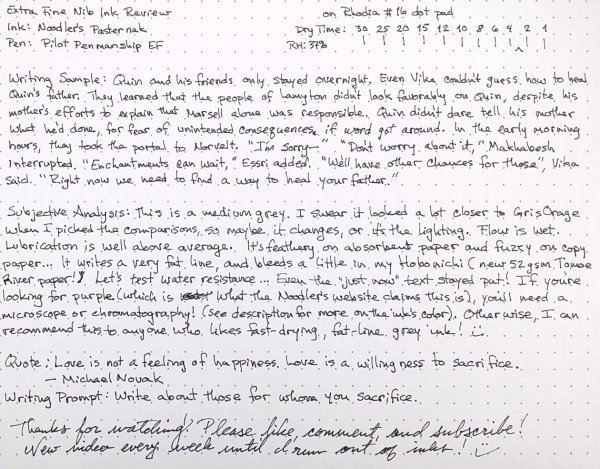 Extra Fine Nib Ink Review on Rhodia #16 dot pad
Ink: Noodler's Pasternak Dry Time: 30 25 20 15 12 10 8 6 4 2 1
Pen: Pilot Penmanship EF RH: 37%
Writing Sample: Quin and his friends only stayed overnight. Even Vika couldn't guess how to heal
Quin's father. They learned that the people of Lamyton didn't look favorably on Quin, despite his
mother's efforts to explain that Marsell alone was responsible. Quin didn't dare tell his mother
what he'd done, for fear of unintended consequences if word got around. In the early morning
hours, they took the portal to Norvelt. "I'm sorry—" "Don't worry about it," Makhabesh
interrupted. "Enchantments can wait," Essri added. "We'll have other chances for those", Vika
said. "Right now we need to find a way to heal your father."
Subjective Analysis: This is a medium grey. I swear it looked a lot closer to Gris Orage
when I picked the comparisons, so maybe it changes, or it's the lighting. Flow is wet.
Lubrication is well above average. It's feathery on absorbent paper and fuzzy on copy
paper... It writes a very fat line, and bleeds a little in my Hobonichi (new 52gsm Tomoe
River paper!) Let's test water resistance... Even the "just now" text stayed put! If you're
looking for purple (which is what the Noodler's website claims this is), you'll need a
microscope or chromatography! (see description for more on the ink's color). Otherwise, I can
recommend this to anyone who likes fast-drying, fat-line grey ink!
Quote: Love is not a feeling of happiness. Love is a willingness to sacrifice.
— Michael Novak
Writing Prompt: Write about those for whom you sacrifice.
Thanks for watching! Please like, comment, and subscribe!
New video every week until I run out of inks!